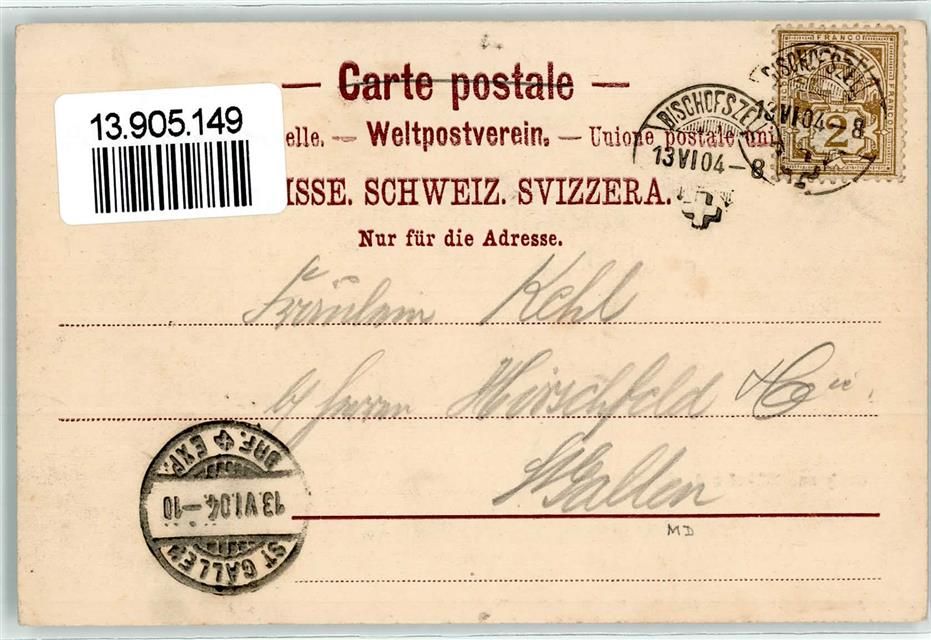 — Carte postale —
13.905.149
elle. — Weltpostverein. — Unione postale uni
ISSE. SCHWEIZ. SVIZZERA.
Nur für die Adresse.
FRANCO
2
BISCHOFSZELL
13 VI 04 – 8
BISCHOFSZE
13 VI 04 – 8
Fräulein Kehl
b/ Herrn Hirschfeld & Cie.
St. Gallen
MD
BRF. EXP.
13. VI. 04. – 10
ST. GALLEN